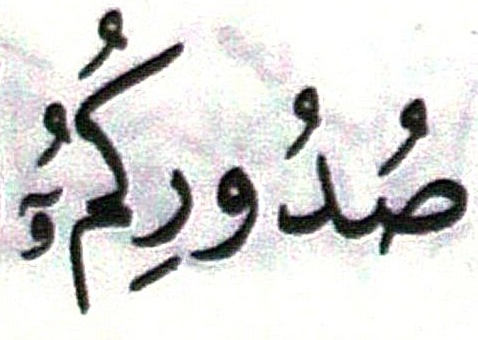 صُدُورِكُمُۥٓ